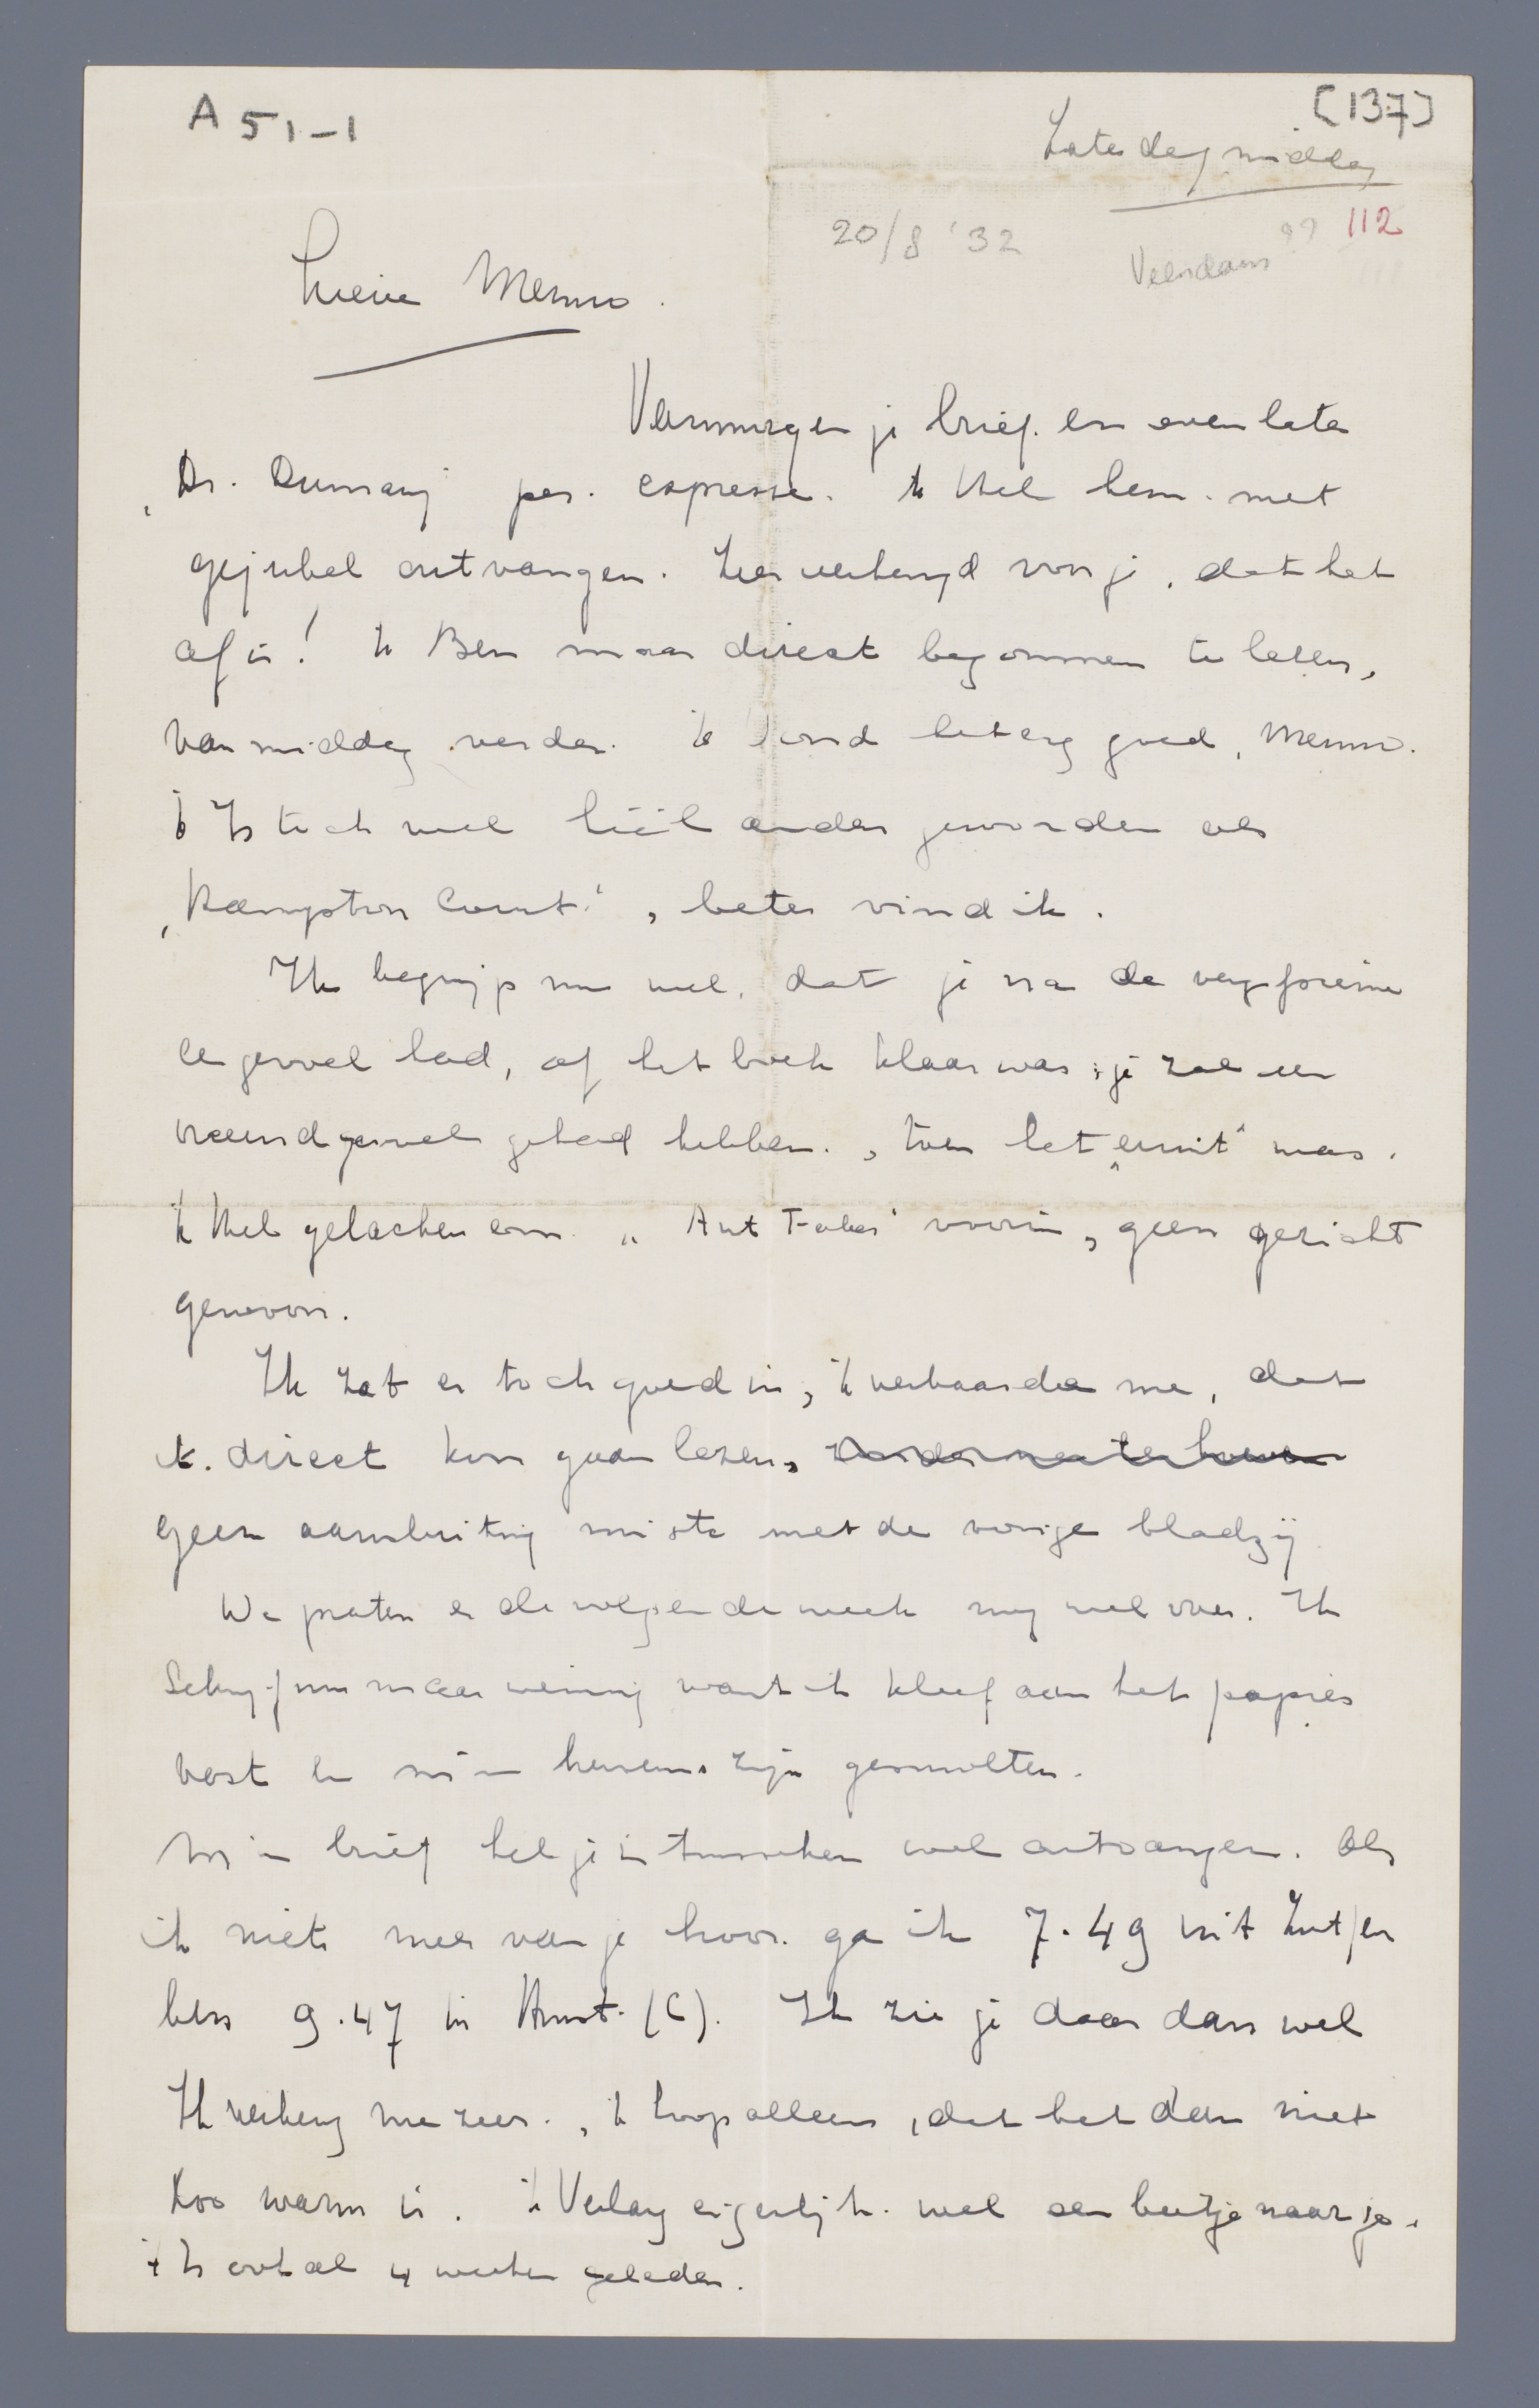 A 51-1
[137]
Zaterdagmiddag
20/8 '32
99 112
Veendam
Lieve Menno.
Vanmorgen je brief en even later
„Dr. Dumay per expresse. 'k Heb hem met
gejubel ontvangen. Zeer verheugd voor je, dat het
af is! 'k Ben maar direct begonnen te lezen,
vanmiddag verder. 'k Vond het erg goed, Menno.
't Is toch wel héél anders geworden als
„Hampton Court", beter vind ik.
Ik begrijp nu wel, dat je na de
gevoel had, of het boek klaar was; je zal een
vreemd gevoel gehad hebben, toen het „eruit" was.
'k Heb gelachen om „Ant Faber" voorin, geen gezicht
gewoon.
Ik zat er toch goed in, 'k verbaasde me, dat
ik direct kon gaan lezen,
geen aansluiting miste met de vorige bladzij
We praten er de volgende week nog wel over. Ik
schrijf nu maar weinig want ik kleef aan het papier
vast en m'n hersens zijn gesmolten.
M'n brief heb je intusschen wel ontvangen. Als
ik niets meer van je hoor ga ik 7.49 uit Zutfen
ben 9.47 in Amst. (C). Ik zie je daar dan wel
Ik verheug me zeer, 'k hoop alleen, dat het dan niet
zoo warm is. 'k Verlang eigenlijk wel een beetje naar je.
't Is ook al 4 weken geleden.